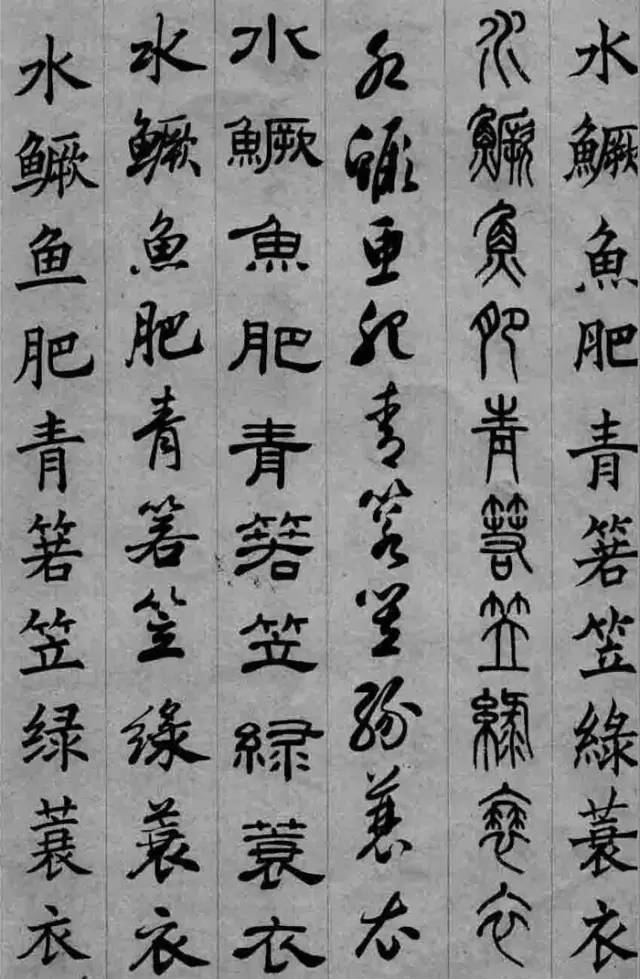 水鱖魚肥青箬笠綠蓑衣
水鱖魚肥青箬笠綠蓑衣
水鱖魚肥青箬笠綠蓑衣
水鱖魚肥青箬笠緑蓑衣
水鱖魚肥青箬笠綠蓑衣
水鳜鱼肥青箬笠绿蓑衣